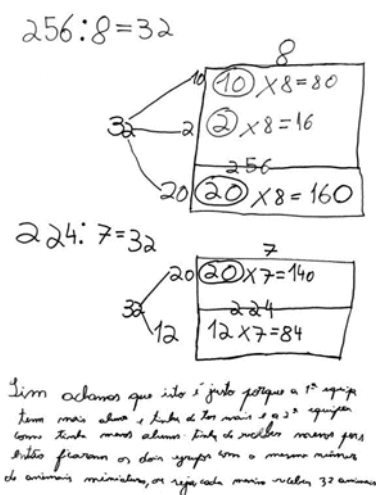 256:8=32
8
10 10 X8=80
32 2 2 X8=16
256
20 20 X8=160
224:7=32
7
20 20 X7=140
32 224
12 12X7=84
Sim achamos que isto é justo porque a 1ª equipa
tem mais alunos e tinha de ter mais e a 2ª equipa
como tinha menos alunos tinha de receber menos por
então ficaram os dois grupos com o mesmo número
de animais miniatura, ou seja cada menino recebeu 32 animais